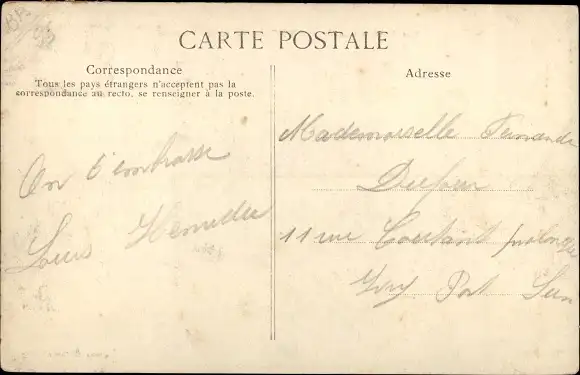 CARTE POSTALE
Correspondance
Tous les pays étrangers n'acceptent pas la
correspondance au recto, se renseigner à la poste.
On t'embrasse
Louis
Adresse
Mademoiselle Fernande
Dufour
11 rue Constant prolongée
Ivry Port